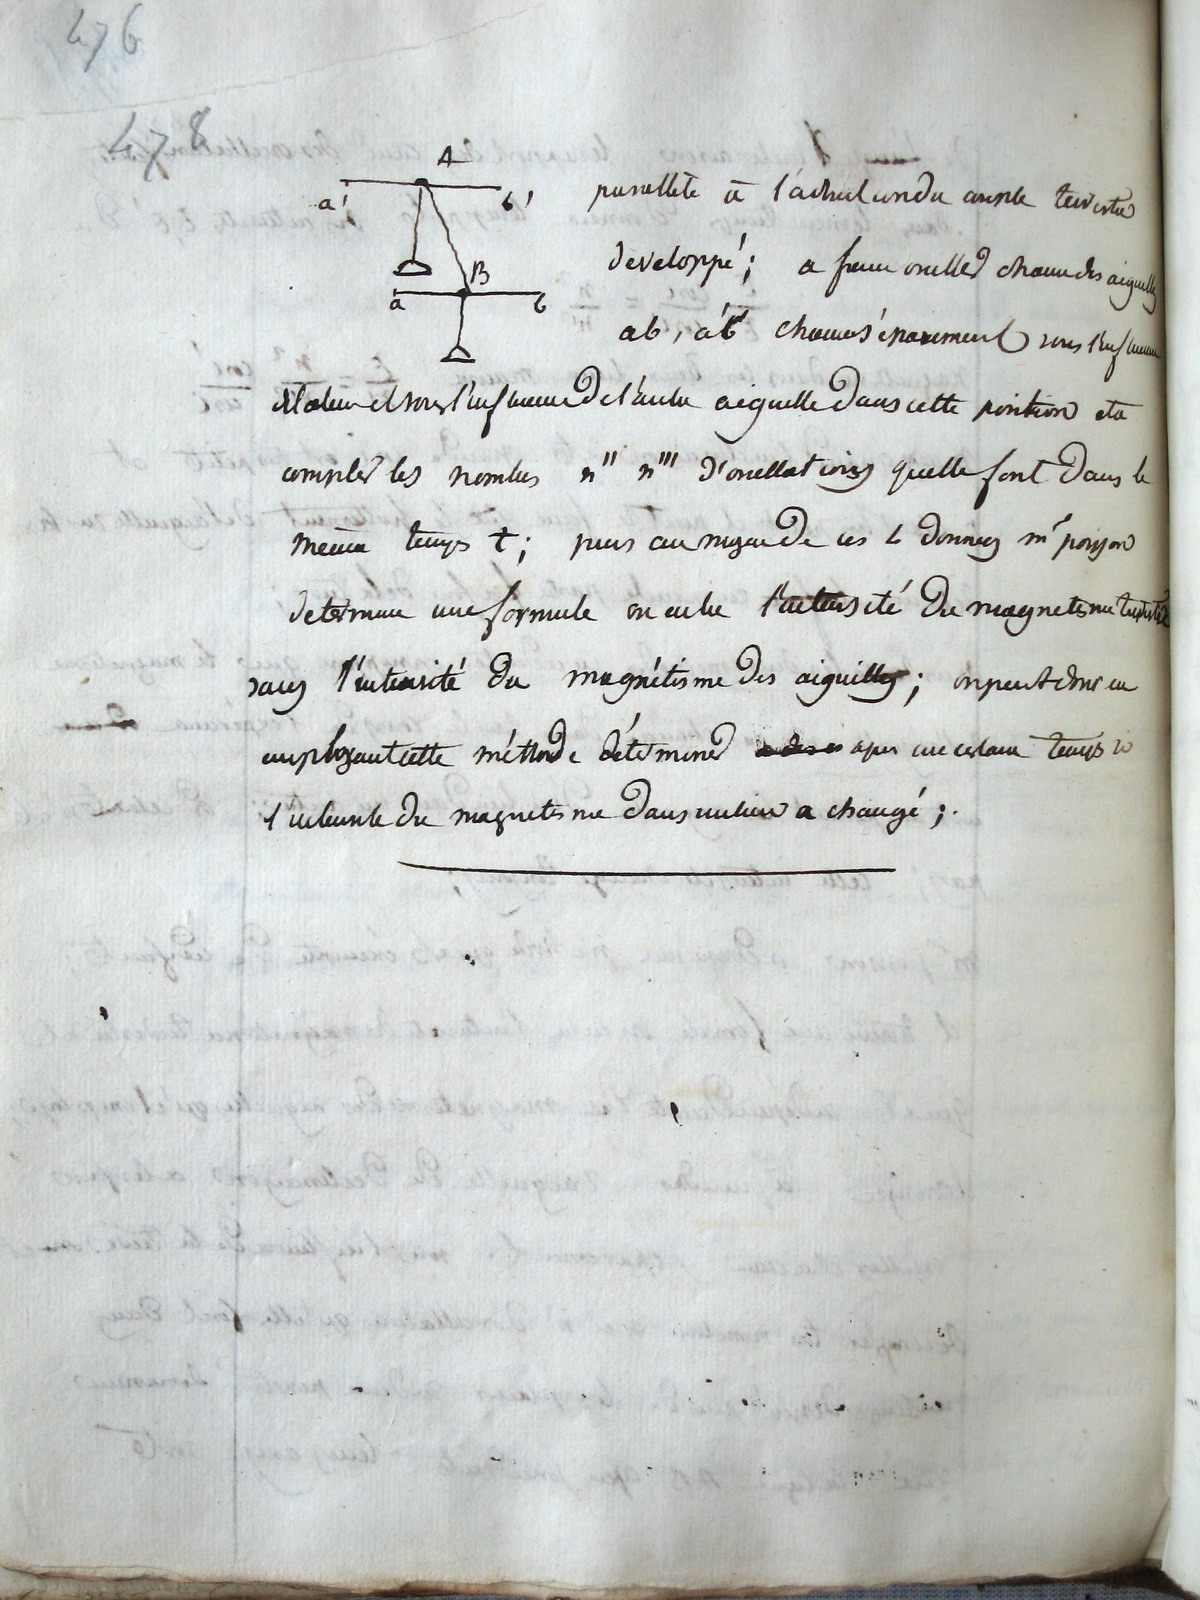 476
478
A
a' b'
B
a b
parallele à l'action du couple terrestre
developpé; a faire osciller chacune des aiguilles
ab, a'b' chacune séparement sous l'influence
et sous l'influence de l'autre aiguille dans cette position et a
compter les nombres n'' n''' d'oscillations quelle font dans le
meme temps t; puis au moyen de ces 4 données mr poisson
determine une formule ou entre l'intensité du magnetisme terrestre
sans l'intensité du magnétisme des aiguilles; on peut donc en
employant cette méthode déterminer apres un certain temps si
l'intensité du magnetisme dans un lieu a changé;.